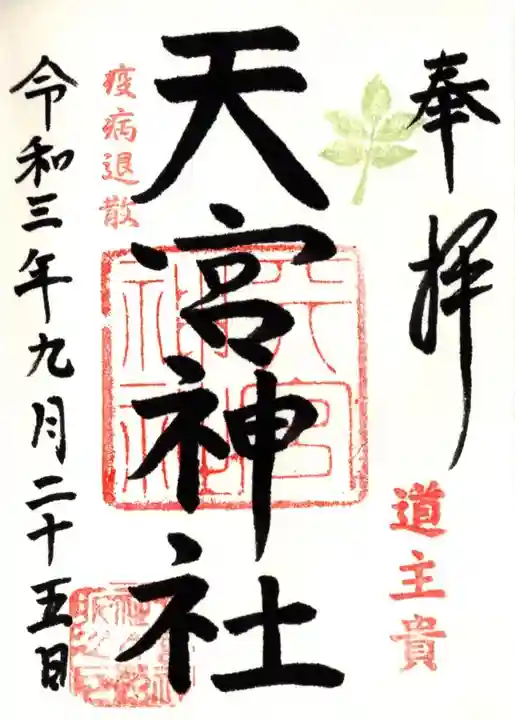 奉拝
道主貴
天宮神社
天宮神社
疫病退散
令和三年九月二十五日